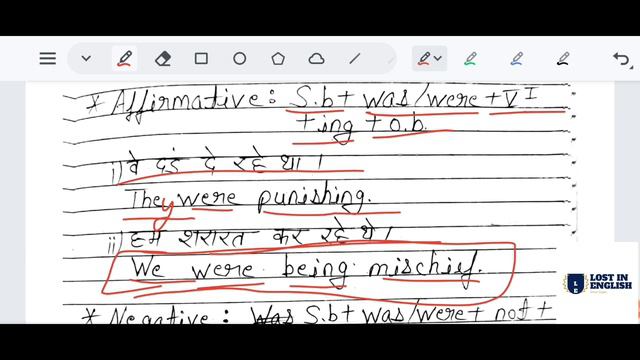 * Affirmative: S.b+ was/were + V I
+ ing + o.b.
i) वे दडं दे रहे था।
They were punishing.
ii) हम शरारत कर रहे थे।
We were being mischief.
* Negative: Was S.b+ was/were + not +
LOST IN
ENGLISH